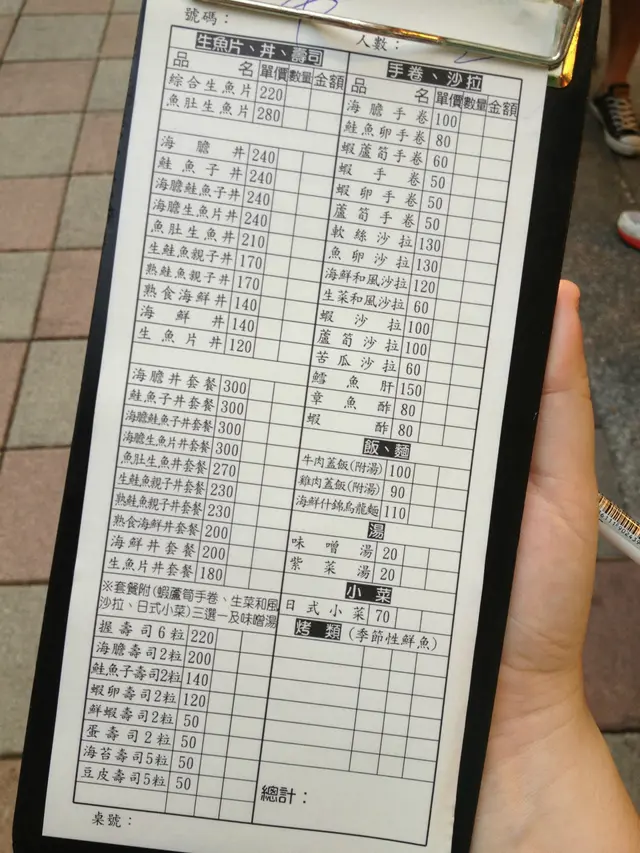 號碼：
人數：
生魚片、丼、壽司
品名 單價 數量 金額
綜合生魚片 220
魚肚生魚片 280
海膽丼 240
鮭魚子丼 240
海膽鮭魚子丼 240
海膽生魚片丼 240
魚肚生魚丼 210
生鮭魚親子丼 170
熟鮭魚親子丼 170
熟食海鮮丼 140
海鮮丼 140
生魚片丼 120
海膽丼套餐 300
鮭魚子丼套餐 300
海膽鮭魚子丼套餐 300
海膽生魚片丼套餐 300
魚肚生魚丼套餐 270
生鮭魚親子丼套餐 230
熟鮭魚親子丼套餐 230
熟食海鮮丼套餐 200
海鮮丼套餐 200
生魚片丼套餐 180
※套餐附(蝦蘆筍手卷、生菜和風
沙拉、日式小菜)三選一及味噌湯
握壽司6粒 220
海膽壽司2粒 200
鮭魚子壽司2粒 140
蝦卵壽司2粒 120
鮮蝦壽司2粒 50
蛋壽司2粒 50
海苔壽司5粒 50
豆皮壽司5粒 50
桌號：
手卷、沙拉
品名 單價 數量 金額
海膽手卷 100
鮭魚卵手卷 80
蝦蘆筍手卷 60
蝦手卷 50
蝦卵手卷 50
蘆筍手卷 50
軟絲沙拉 130
魚卵沙拉 130
海鮮和風沙拉 120
生菜和風沙拉 60
蝦沙拉 100
蘆筍沙拉 100
苦瓜沙拉 60
鱈魚肝 150
章魚酢 80
蝦酢 80
飯、麵
牛肉蓋飯(附湯) 100
雞肉蓋飯(附湯) 90
海鮮什錦烏龍麵 110
湯
味噌湯 20
紫菜湯 20
小菜
日式小菜 70
烤類(季節性鮮魚)
總計：